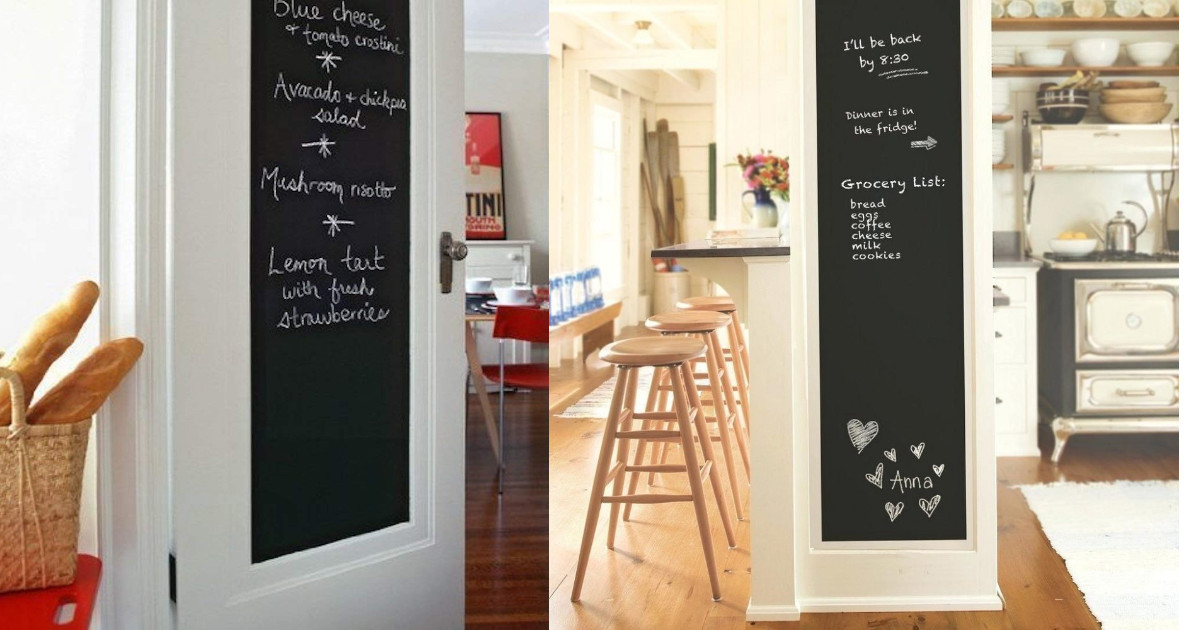 Blue cheese
+ tomato crostini
Avacado + chickpea
salad
Mushroom risotto
Lemon tart
with fresh
strawberries
TINI
I'll be back
by 8:30
Dinner is in
the fridge!
Grocery List:
bread
eggs
coffee
cheese
milk
cookies
Anna